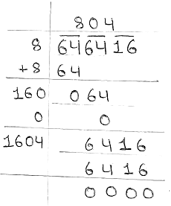 804
8 646416
+8 64
160 064
0 0
1604 6416
6416
0000